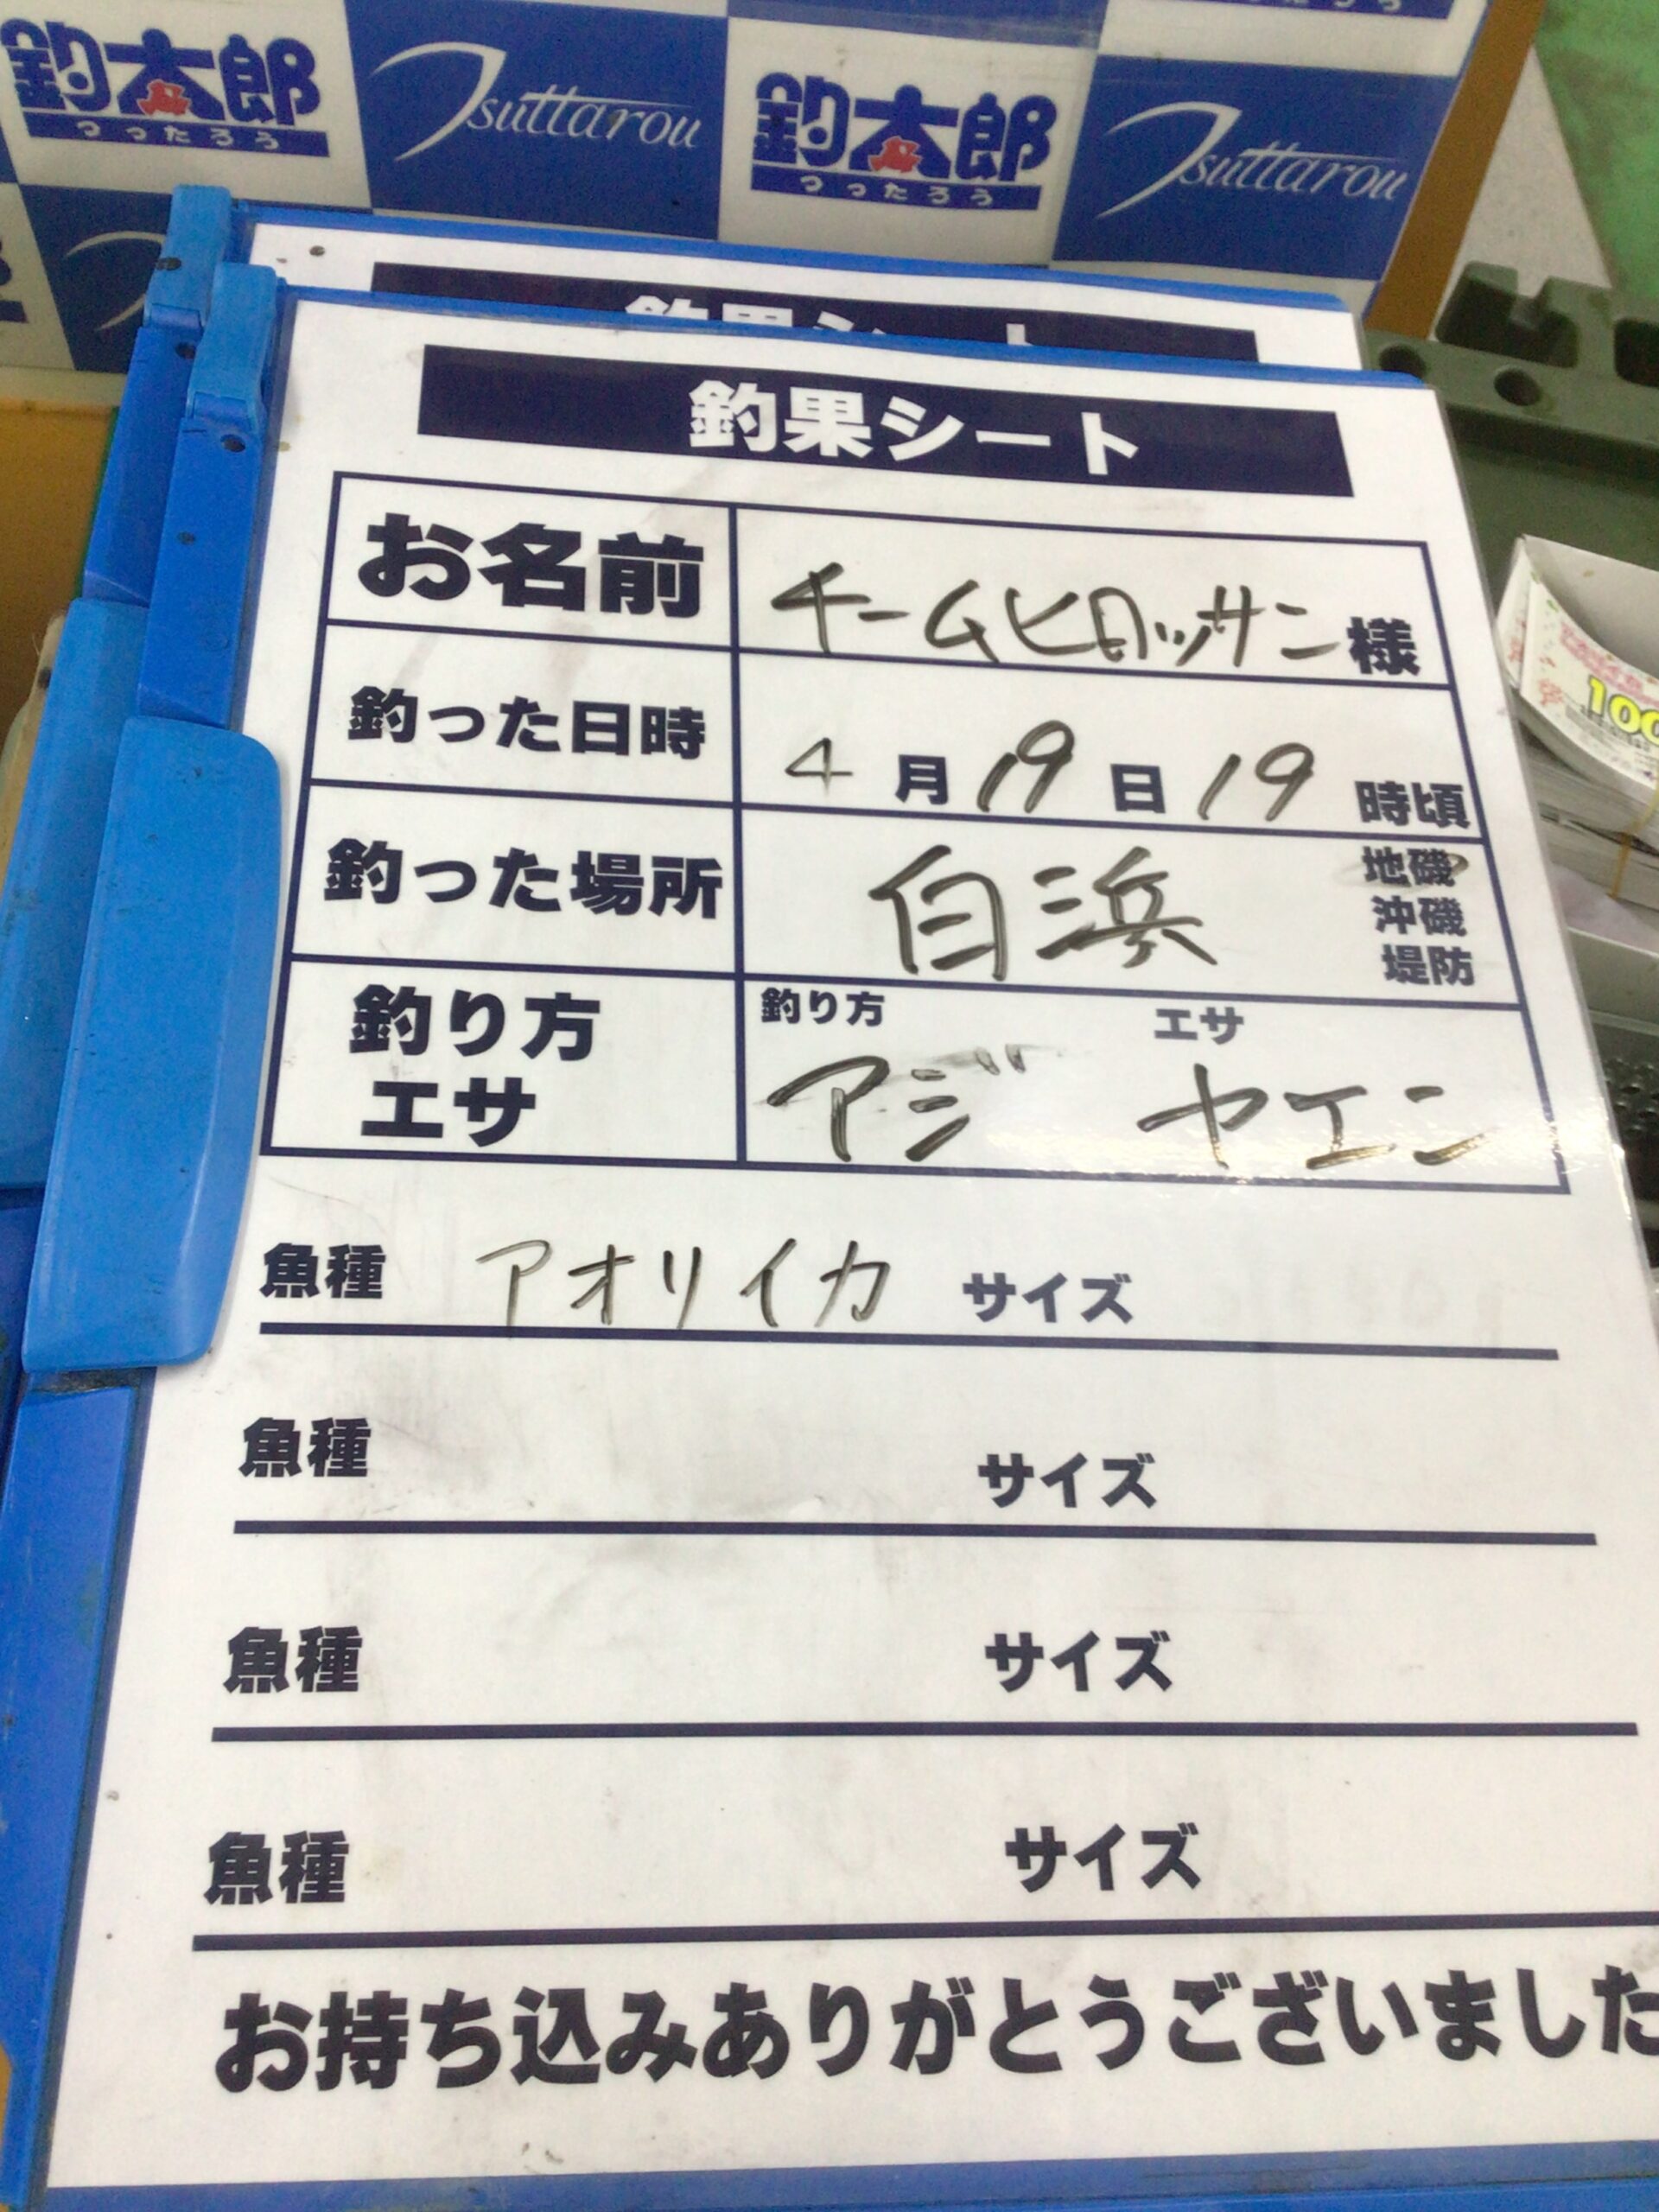 釣太郎
つったろう
Tsuttarou
釣太郎
つったろう
Tsuttarou
釣果シート
釣果シート
お名前 チームヒロッサン様
釣った日時 4月19日19時頃
釣った場所 白浜 地磯
沖磯
堤防
釣り方 釣り方 エサ
エサ アジ ヤエン
魚種 アオリイカ サイズ
魚種 サイズ
魚種 サイズ
魚種 サイズ
お持ち込みありがとうございました
100